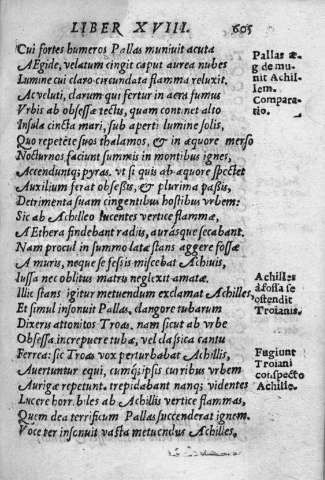 LIBER XVIII. 605
Cui fortes humeros Pallas muniuit acuta
AEgide, velatum cingit caput aurea nubes
Lumine cui claro circundata flamma reluxit.
Ac veluti, clarum qui fertur in aera fumus
Vrbis ab obsessæ tectis, quam continet alto
Insula cincta mari, sub aperti lumine solis,
Quo repetẽte suos thalamos, & in æquore merso
Nocturnos faciunt summis in montibus ignes,
Accenduntq; pyras, vt si quis ab æquore spectet
Auxilium ferat obseßis, & plurima paßis,
Detrimenta suam cingentibus hostibus vrbem:
Sic ab Achilleo lucentes vertice flammæ,
AEthera findebant radijs, aurasque secabant.
Nam procul in summo latæ stans aggere fossæ
A muris, neque se fessis miscebat Achiuis,
Iussa nec oblitus matris neglexit amatæ.
Illic stans igitur metuendum exclamat Achilles,
Et simul insonuit Pallas, clangore tubarum
Dixeris attonitos Troas, nam sicut ab vrbe
Obsessa increpuere tubæ, vel classica cantu
Ferrea: sic Troas vox perturbabat Achillis,
Auertuntur equi, cumq; ipsis curribus vrbem
Aurigæ repetunt. trepidabant nanq; videntes
Lucere horribiles ab Achillis vertice flammas,
Quem dea terrificum Pallas succenderat ignem.
Voce ter insonuit vasta metuendus Achilles,
Pallas æg
de mu
nit Achil
lem.
Compara
tio.
Achilles
ad fossā se
ostendit
Troianis.
Fugiunt
Troiani
cōspecto
Achille.